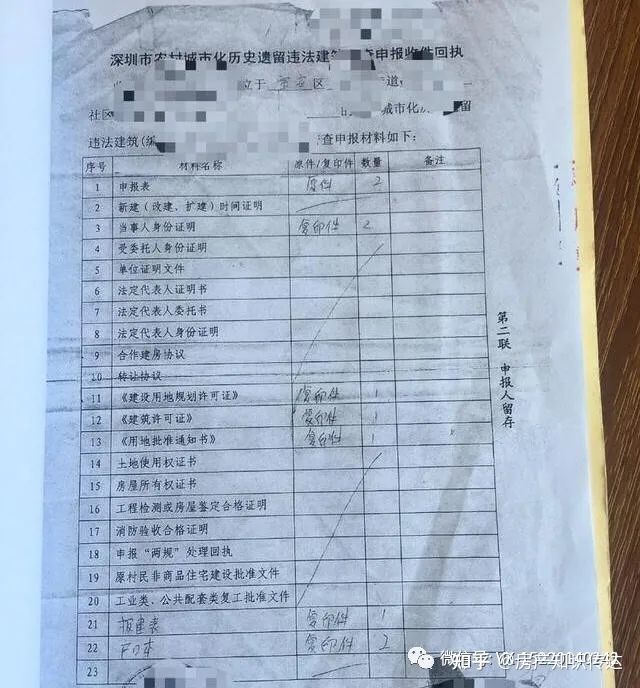 深圳市农村城市化历史遗留违法建筑 查申报收件回执
位于 宝安区 街道
社区 城市化 留
违法建筑(编 查申报材料如下:
序号 材料名称 原件/复印件 数量 备注
1 申报表 原件 2
2 新建(改建、扩建)时间证明
3 当事人身份证明 复印件 2
4 受委托人身份证明
5 单位证明文件
6 法定代表人证明书
7 法定代表人委托书
8 法定代表人身份证明
9 合作建房协议
10 转让协议
11 《建设用地规划许可证》 复印件 1
12 《建筑许可证》 复印件 1
13 《用地批准通知书》 复印件 1
14 土地使用权证书
15 房屋所有权证书
16 工程检测或房屋鉴定合格证明
17 消防验收合格证明
18 申报“两规”处理回执
19 原村民非商品住宅建设批准文件
20 工业类、公共配套类复工批准文件
21 报建表 复印件 1
22 户口本 复印件 2
23
第二联 申报人留存
知乎 @房产知识传达
微信号: